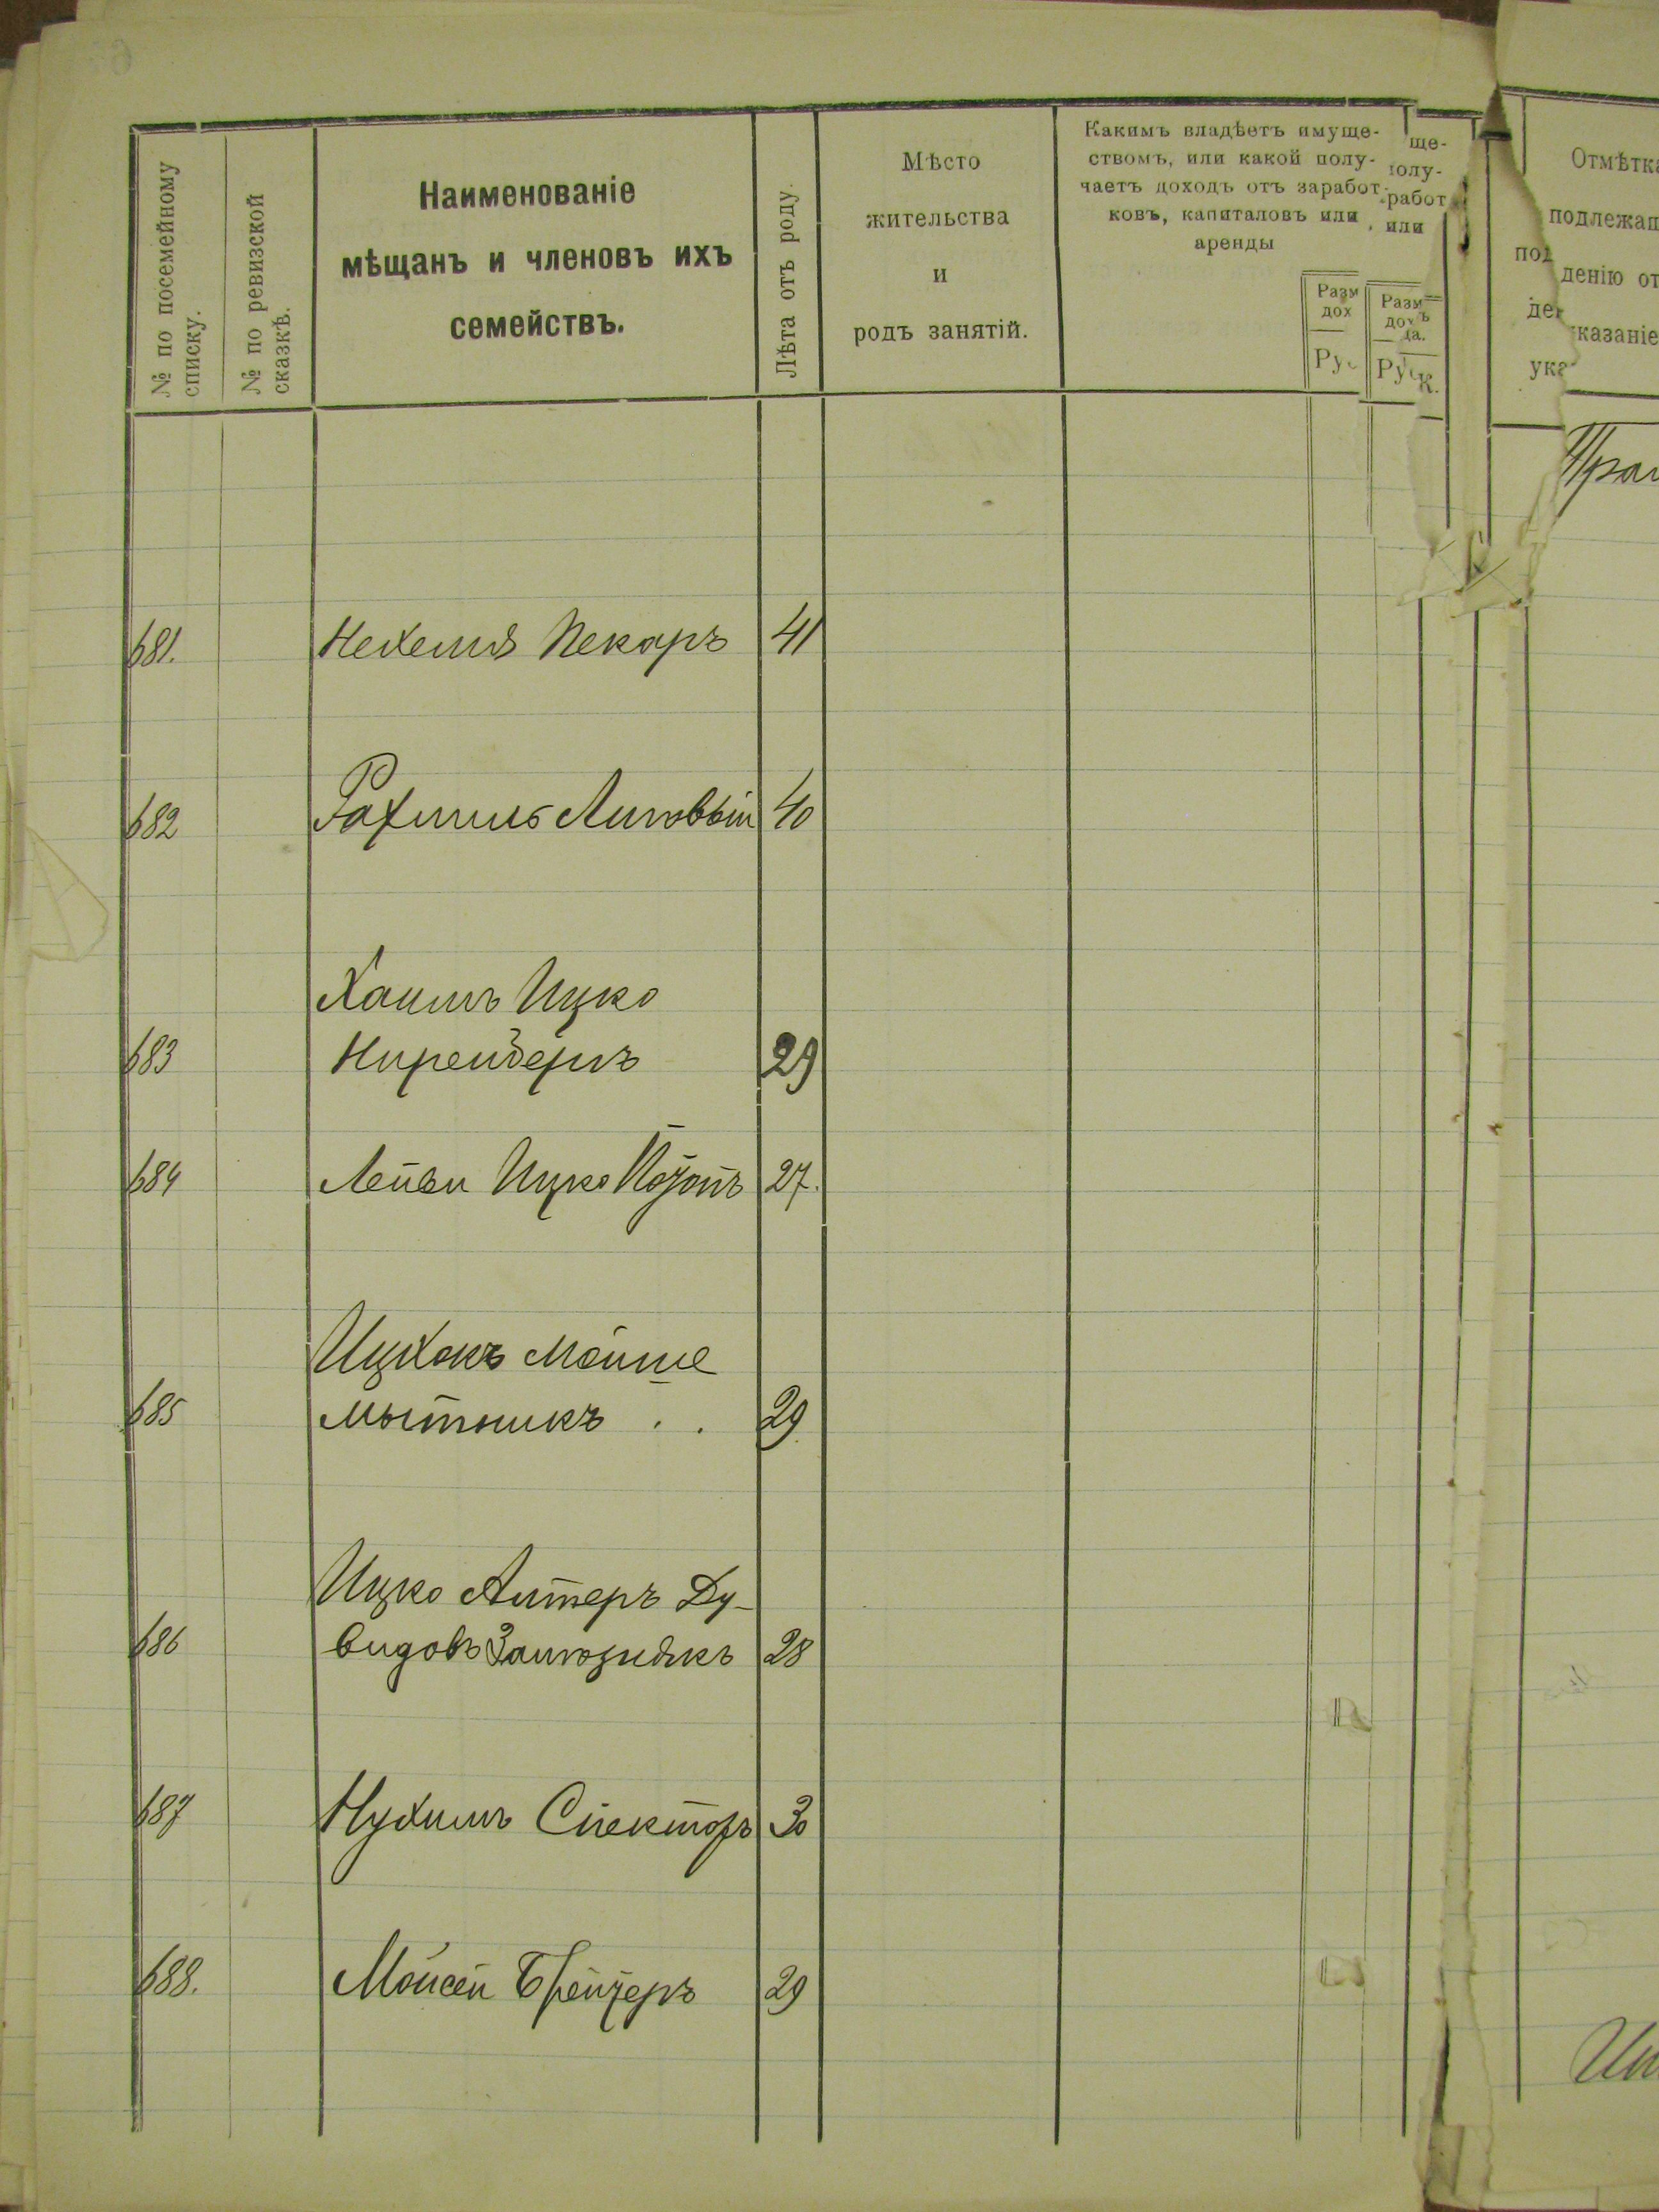 № по посемейному
списку.
№ по ревизской
сказкѣ.
Наименованіе
мѣщанъ и членовъ ихъ
семействъ.
Лѣта отъ роду.
Мѣсто
жительства
и
родъ занятій.
Какимъ владѣетъ имуще-
ствомъ, или какой полу-
чаетъ доходъ отъ заработ-
ковъ, капиталовъ или
аренды
ще-
полу-
работ
или
Разм
дох
Разм
да.
К.
Отмѣтка
подлежащ
денію от
казаніе
681. Нехемія Пекаръ 41
682 Рахмиль Липовый 40
Хаимъ Ицко
683 29
684 Лейви Ицко 27.
Ицхокъ Мойше
685 Мытникъ . . 29
Ицко Алтеръ Ду-
686 видовъ 28
687 Нухимъ Спекторъ 30
688. Мойсей 29